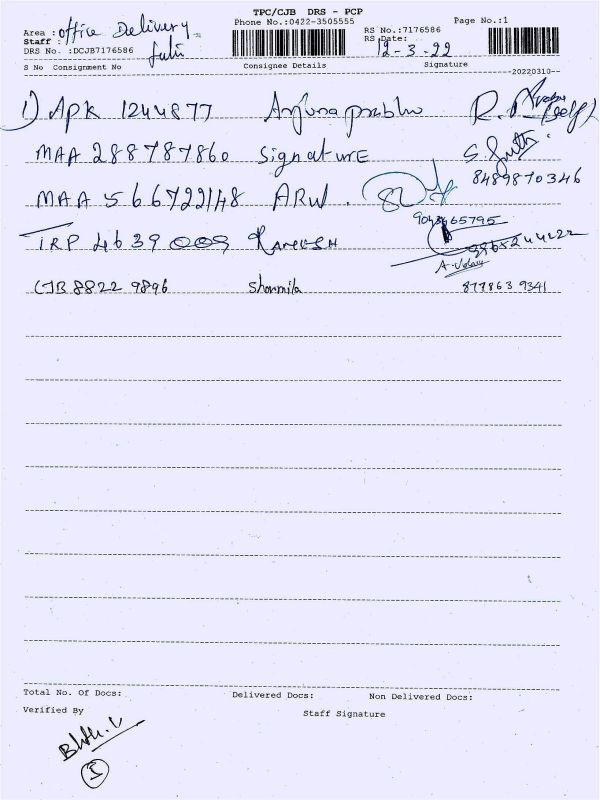 TPC/CJB DRS - PCP
Phone No.:0422-3505555
Page No.:1
Area : office Delivery
Staff :
RS No.:7176586
RS Date: 12-3-22
DRS No. :DCJB7176586
S No Consignment No Consignee Details Signature
--20220310--
1) APK 1244877 Arjuna prabhu
MAA 288787860 Signature
8489870346
MAA 566722148 ARW .
9043665795
TRP 4639009 Ramesh
CJB 8822 9896 Sharmila 877863 9341
Total No. Of Docs: Delivered Docs: Non Delivered Docs:
Verified By Staff Signature
5